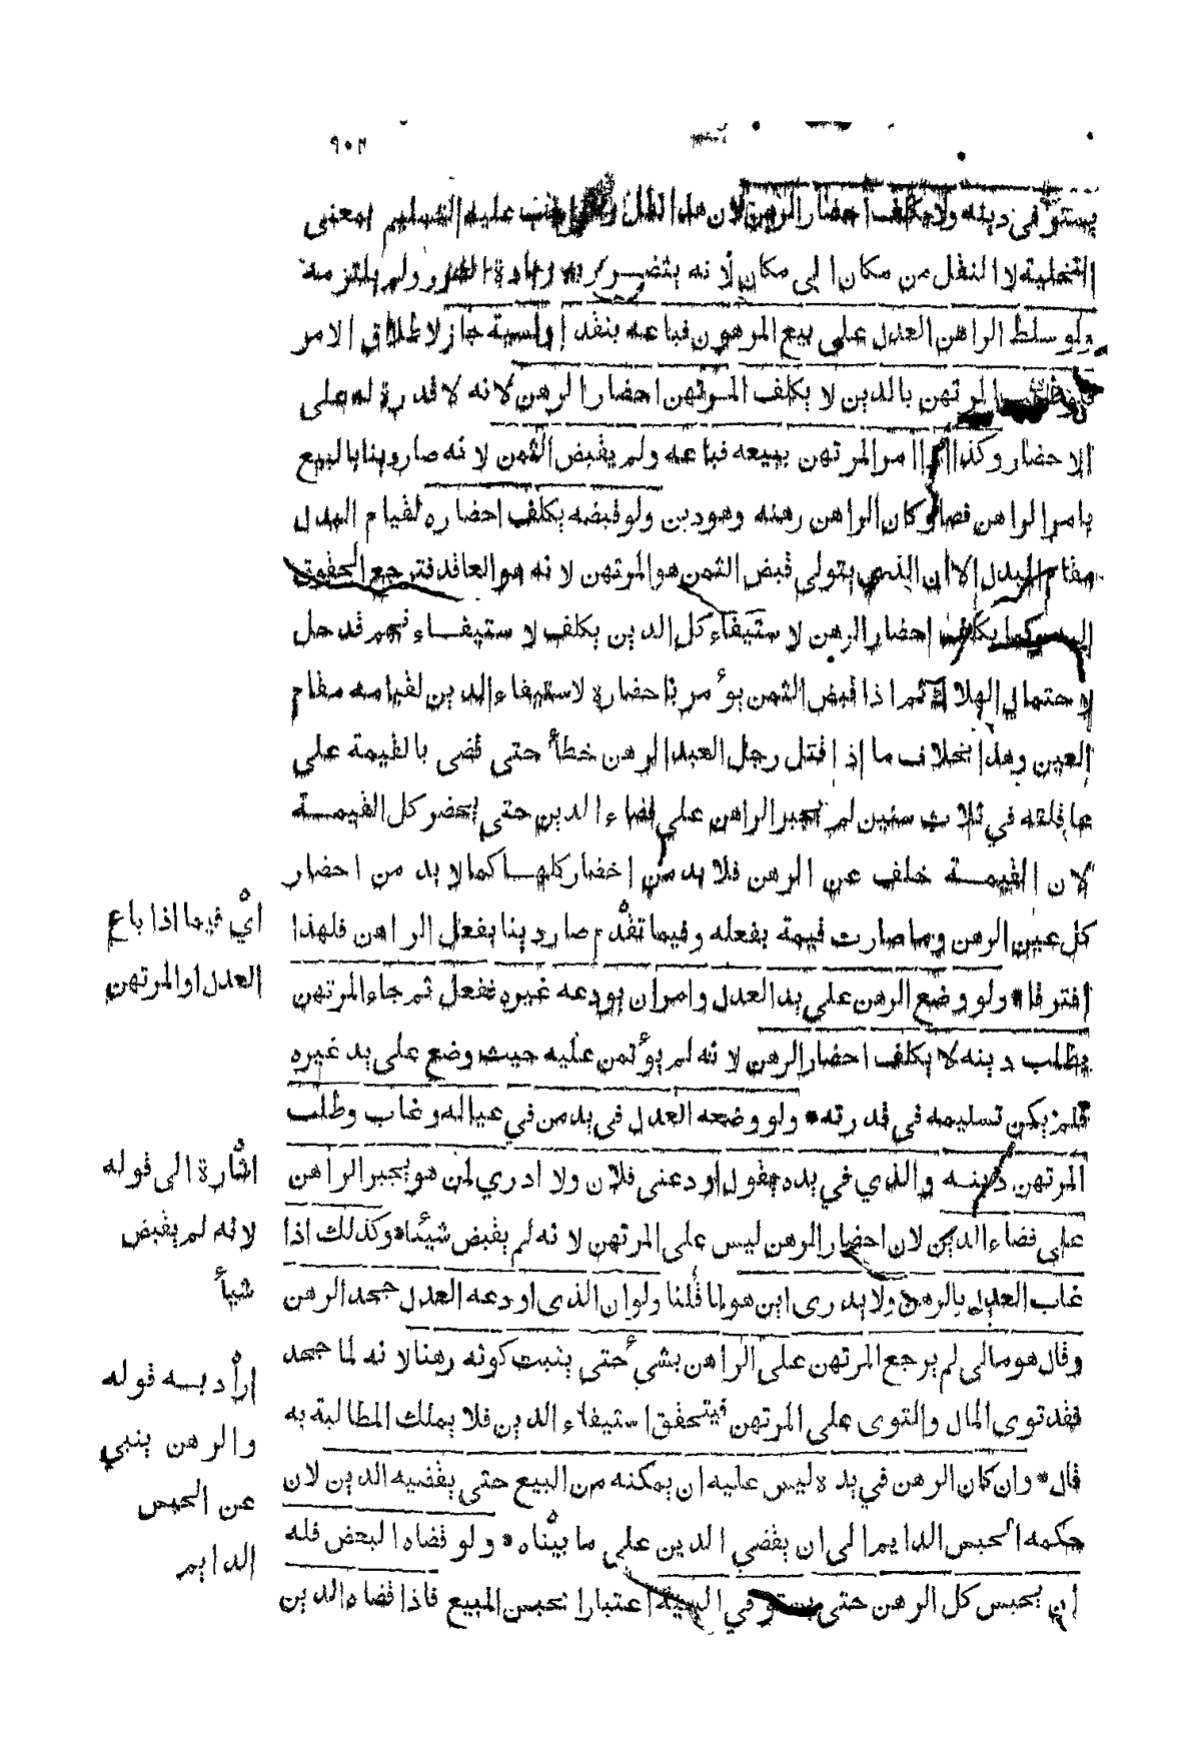 ٩٠٢
يستوفى دينه ولا يكلف احضار الرهن لان هذا نقل والواجب عليه التسليم بمعنى
التخلية لا النقل من مكان الى مكان لانه يتضرر به زيادة الضرر ولم يلتزمه
ولو سلط الراهن العدل على بيع المرهون فباعه بنقد او نسية جاز لاطلاق الامر
المرتهن بالدين لا يكلف المرتهن احضار الرهن لانه لا قدرة له على
الاحضار وكذا اذا امر المرتهن ببيعه فباعه ولم يقبض الثمن لانه صار دينا بالبيع
بامر الراهن فصار كان الراهن رهنه وهو دين ولو قبضه يكلف احضاره لقيام البدل
مقام المبدل الا ان الذى يتولى قبض الثمن هو المرتهن لانه هو العاقد فترجع الحقوق
اليه وكما يكلف احضار الرهن لاستيفاء كل الدين يكلف لاستيفاء نجم قد حل
لاحتمال الهلاك ثم اذا قبض الثمن يؤمر باحضاره لاستيفاء الدين لقيامه مقام
العين وهذا بخلاف ما اذا قتل رجل العبد الرهن خطأ حتى قضى بالقيمة على
عاقلته في ثلاث سنين لم يجبر الراهن على قضاء الدين حتى يحضر كل القيمة
لان القيمة خلف عن الرهن فلا بد من احضار كلها كما لا بد من احضار
كل عين الرهن وما صارت قيمة بفعله وفيما تقدم صار دينا بفعل الراهن فلهذا
افترقا • ولو وضع الرهن على يد العدل وامر ان يودعه غيره ففعل ثم جاء المرتهن
يطلب دينه لا يكلف احضار الرهن لانه لم يؤتمن عليه حيث وضع على يد غيره
فلم يكن تسليمه في قدرته • ولو وضعه العدل في يد من في عياله وغاب وطلب
المرتهن دينه والذي في يده يقول اودعنى فلان ولا ادري لمن هو يجبر الراهن
على قضاء الدين لان احضار الرهن ليس على المرتهن لانه لم يقبض شيئا • وكذلك اذا
غاب العدل بالرهن ولا يدرى اين هو لما قلنا ولو ان الذى اودعه العدل جحد الرهن
وقال هو مالى لم يرجع المرتهن على الراهن بشيء حتى يثبت كونه رهنا لانه لما جحد
فقد توى المال والتوى على المرتهن فيتحقق استيفاء الدين فلا يملك المطالبة به
قال • وان كان الرهن في يده ليس عليه ان يمكنه من البيع حتى يقضيه الدين لان
حكمه الحبس الدايم الى ان يقضي الدين على ما بيناه • ولو قضاه البعض فله
ان يحبس كل الرهن حتى يستوفي البقية اعتبارا بحبس المبيع فاذا قضاه الدين
اي فيما اذا باع
العدل او المرتهن
اشارة الى قوله
لانه لم يقبض
شيأ
اراد به قوله
والرهن ينبي
عن الحبس
الدايم